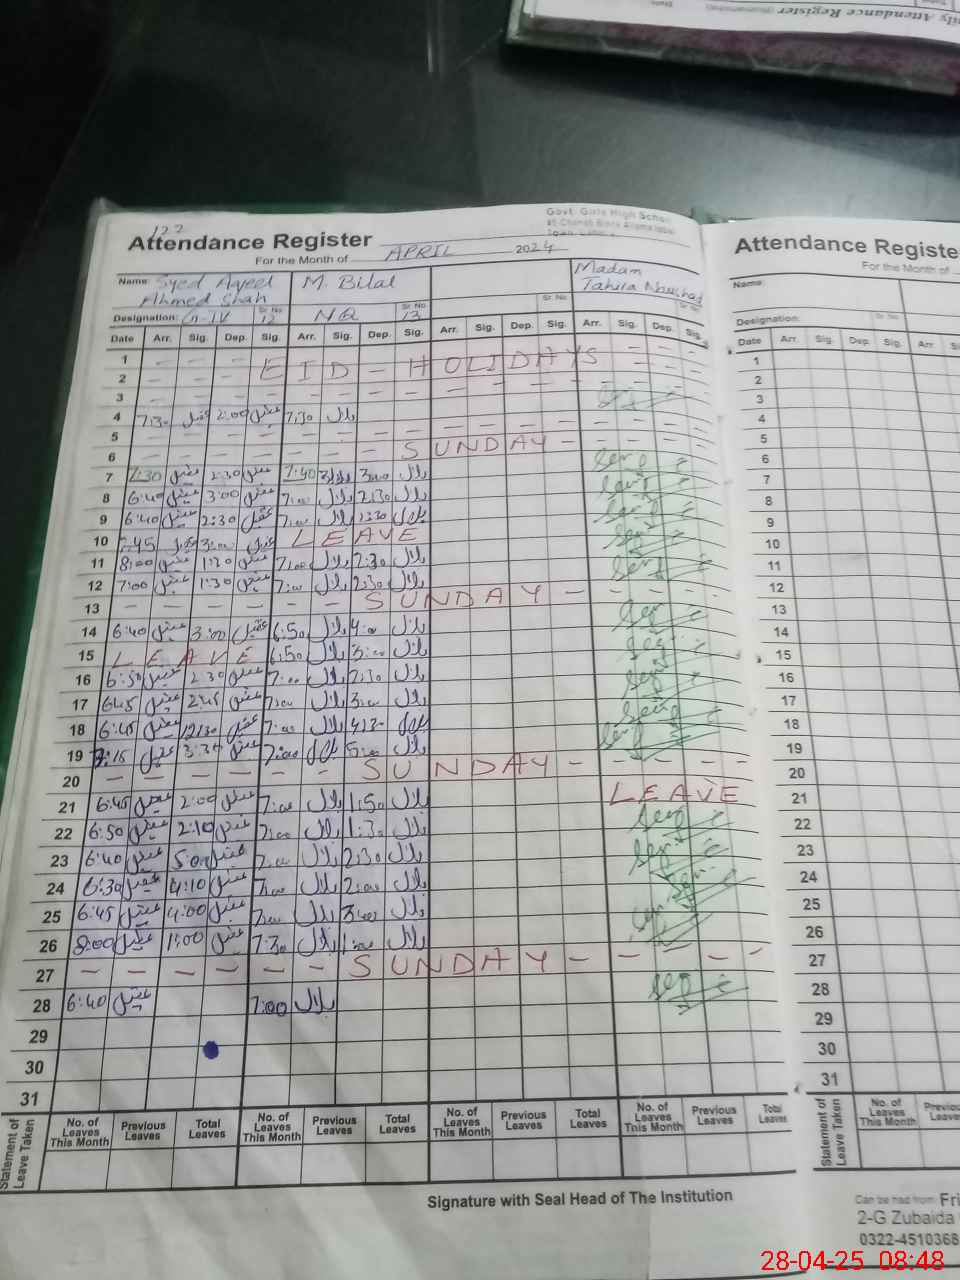 ily Attendance Register
122
Govt. Girls High School
Attendance Register
For the Month of APRIL 2024
Name: Syed Aqeel Ahmed Shah
M. Bilal
Madam Tahira
Designation: G-IV Sr. No 12
NQ Sr. No 13
Sr. No
Sr. No
Date Arr. Sig. Dep. Sig. Arr. Sig. Dep. Sig. Arr. Sig. Dep. Sig. Arr. Sig. Dep. Sig.
1 — — — — — —
EID - HOLIDAYS
2 — — —
3 — — — — — —
4 7:30 عقیل 2:00 عقیل 7:30 بلال
5 — — — — — —
6 — — — — — SUNDAY —
7 7:30 عقیل 2:30 عقیل 7:40 بلال 3:00 بلال
8 6:40 عقیل 3:00 عقیل 7:00 بلال 2:30 بلال
9 6:40 عقیل 2:30 عقیل 7:00 بلال 2:30 بلال
10 7:45 عقیل 3:00 عقیل LEAVE
11 8:00 عقیل 1:30 عقیل 7:00 بلال 2:30 بلال
12 7:00 عقیل 1:30 عقیل 7:00 بلال 2:30 بلال
13 — — — — — — SUNDAY — — — —
14 6:40 عقیل 3:00 عقیل 6:50 بلال 4:00 بلال
15 LEAVE 6:50 بلال 3:00 بلال
16 6:50 عقیل 2:30 عقیل 7:00 بلال 2:30 بلال
17 6:45 عقیل 2:45 عقیل 7:00 بلال 3:00 بلال
18 6:45 عقیل 12:30 عقیل 7:00 بلال 4:30 بلال
19 7:15 عقیل 3:30 عقیل 7:00 بلال 5:00 بلال
20 — — — — — — SUNDAY — — — —
21 6:45 عقیل 2:00 عقیل 7:00 بلال 1:50 بلال LEAVE
22 6:50 عقیل 2:10 عقیل 7:00 بلال 1:30 بلال
23 6:40 عقیل 5:00 عقیل 7:00 بلال 2:30 بلال
24 6:30 عقیل 4:10 عقیل 7:00 بلال 2:00 بلال
25 6:45 عقیل 4:00 عقیل 7:00 بلال 3:00 بلال
26 8:00 عقیل 1:00 عقیل 7:30 بلال 1:00 بلال
27 — — — — — — SUNDAY — — — —
28 6:40 عقیل 7:00 بلال
29
30
31
Statement of Leave Taken
No. of Leaves This Month Previous Leaves Total Leaves No. of Leaves This Month Previous Leaves Total Leaves No. of Leaves This Month Previous Leaves Total Leaves No. of Leaves This Month Previous Leaves Total Leaves
Signature with Seal Head of The Institution
Attendance Registe
For the Month of
Name:
Designation: Sr. No
Date Arr. Sig. Dep. Sig. Arr. S
1
2
3
4
5
6
7
8
9
10
11
12
13
14
15
16
17
18
19
20
21
22
23
24
25
26
27
28
29
30
31
Statement of Leave Taken
No. of Leaves This Month Previou Leave
Can be had from: Fri
2-G Zubaida
0322-4510368
28-04-25 08:48